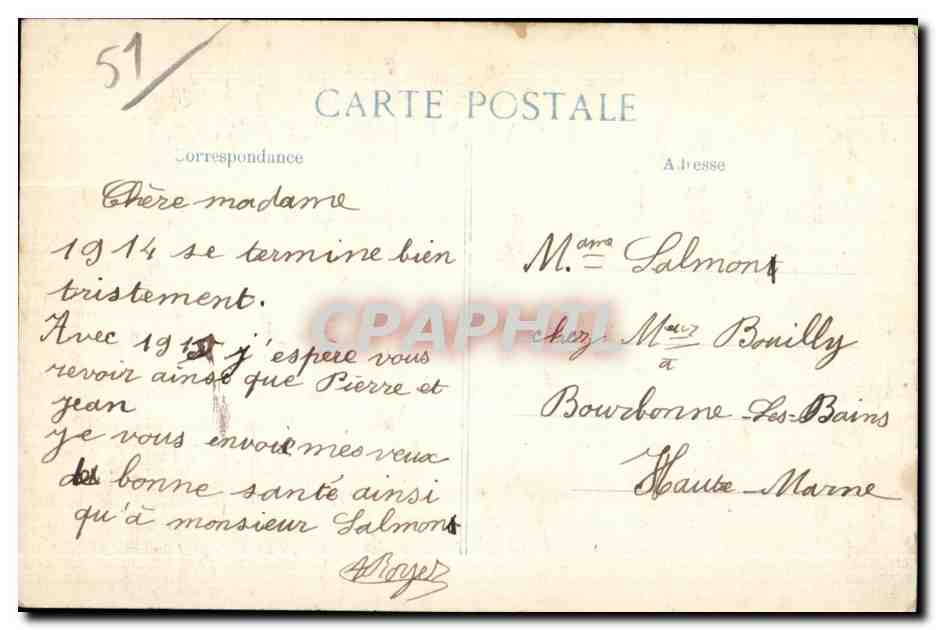 51
CARTE POSTALE
Correspondance
Adresse
Chère madame
1914 se termine bien
tristement.
Avec 1915 j'espere vous
revoir ainsi que Pierre et
jean
je vous envoie mes veux
de bonne santé ainsi
qu'à monsieur Salmon
A Royer
M.ame Salmon
chez Mr Bouilly
à
Bourbonne-Les-Bains
Haute-Marne
CPAPHIL